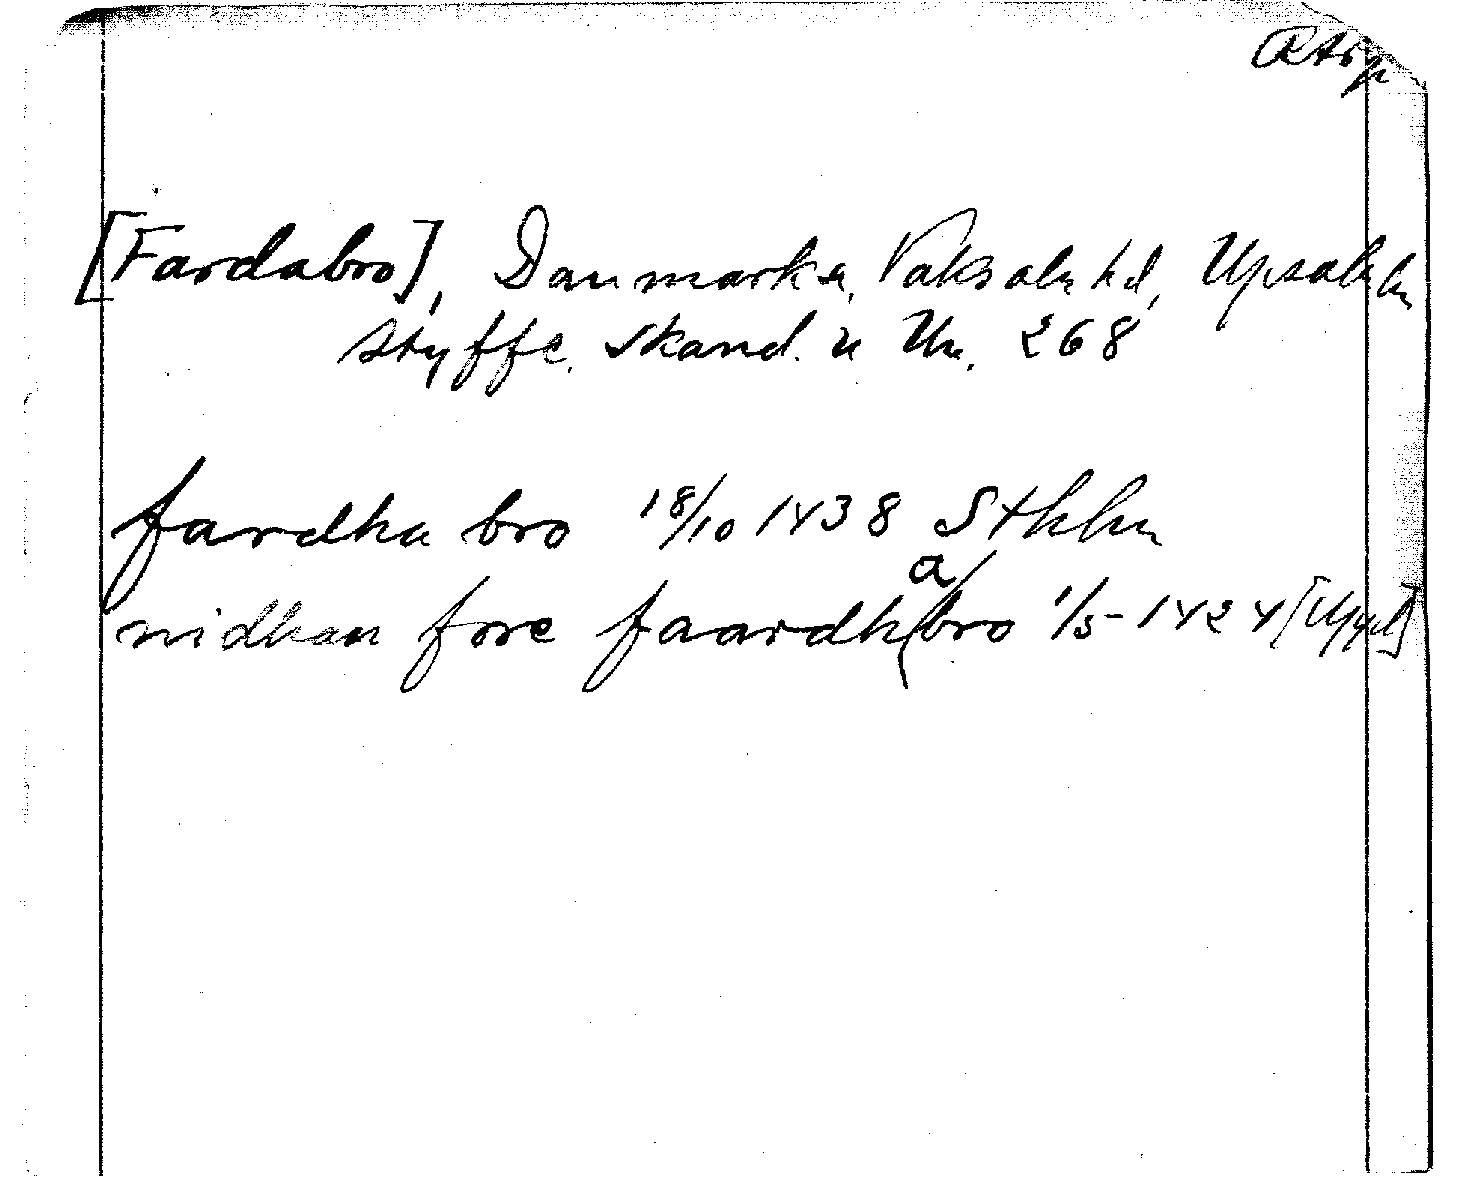 [Fardabro], Danmarks sn, Vaksala hd, Upsala län
Styffe. Skand. u Un. 268
fardha bro 18/10 1438 Sthlm
nidhan fore faardh a bro 1/5-1424 [Uppl]